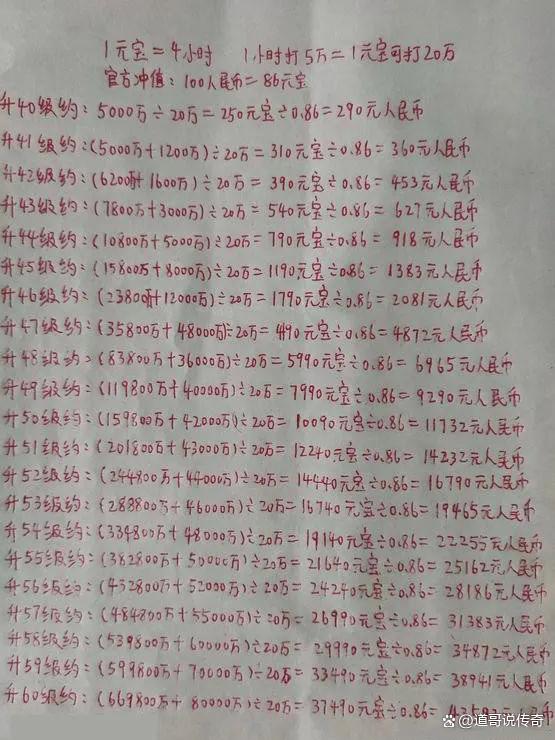 1元宝=4小时 1小时打5万=1元宝可打20万
官方冲值:100人民币=86元宝
升40级约:5000万÷20万=250元宝÷0.86=290元人民币
升41级约:(5000万+1200万)÷20万=310元宝÷0.86=360元人民币
升42级约:(6200万+1600万)÷20万=390元宝÷0.86=453元人民币
升43级约:(7800万+3000万)÷20万=540元宝÷0.86=627元人民币
升44级约:(10800万+5000万)÷20万=790元宝÷0.86=918元人民币
升45级约:(15800万+8000万)÷20万=1190元宝÷0.86=1383元人民币
升46级约:(23800万+12000万)÷20万=1790元宝÷0.86=2081元人民币
升47级约:(35800万+48000万)÷20万=4190元宝÷0.86=4872元人民币
升48级约:(83800万+36000万)÷20万=5990元宝÷0.86=6965元人民币
升49级约:(119800万+40000万)÷20万=7990元宝÷0.86=9290元人民币
升50级约:(159800万+42000万)÷20万=10090元宝÷0.86=11732元人民币
升51级约:(201800万+43000万)÷20万=12240元宝÷0.86=14232元人民币
升52级约:(244800万+44000万)÷20万=14440元宝÷0.86=16790元人民币
升53级约:(288800万+46000万)÷20万=16740元宝÷0.86=19465元人民币
升54级约:(334800万+48000万)÷20万=19140元宝÷0.86=22255元人民币
升55级约:(382800万+50000万)÷20万=21640元宝÷0.86=25162元人民币
升56级约:(432800万+52000万)÷20万=24240元宝÷0.86=28186元人民币
升57级约:(484800万+55000万)÷20万=26990元宝÷0.86=31383元人民币
升58级约:(539800万+60000万)÷20万=29990元宝÷0.86=34872元人民币
升59级约:(599800万+70000万)÷20万=33490元宝÷0.86=38941元人民币
升60级约:(669800万+80000万)÷20万=37490元宝÷0.86=
@道哥说传奇